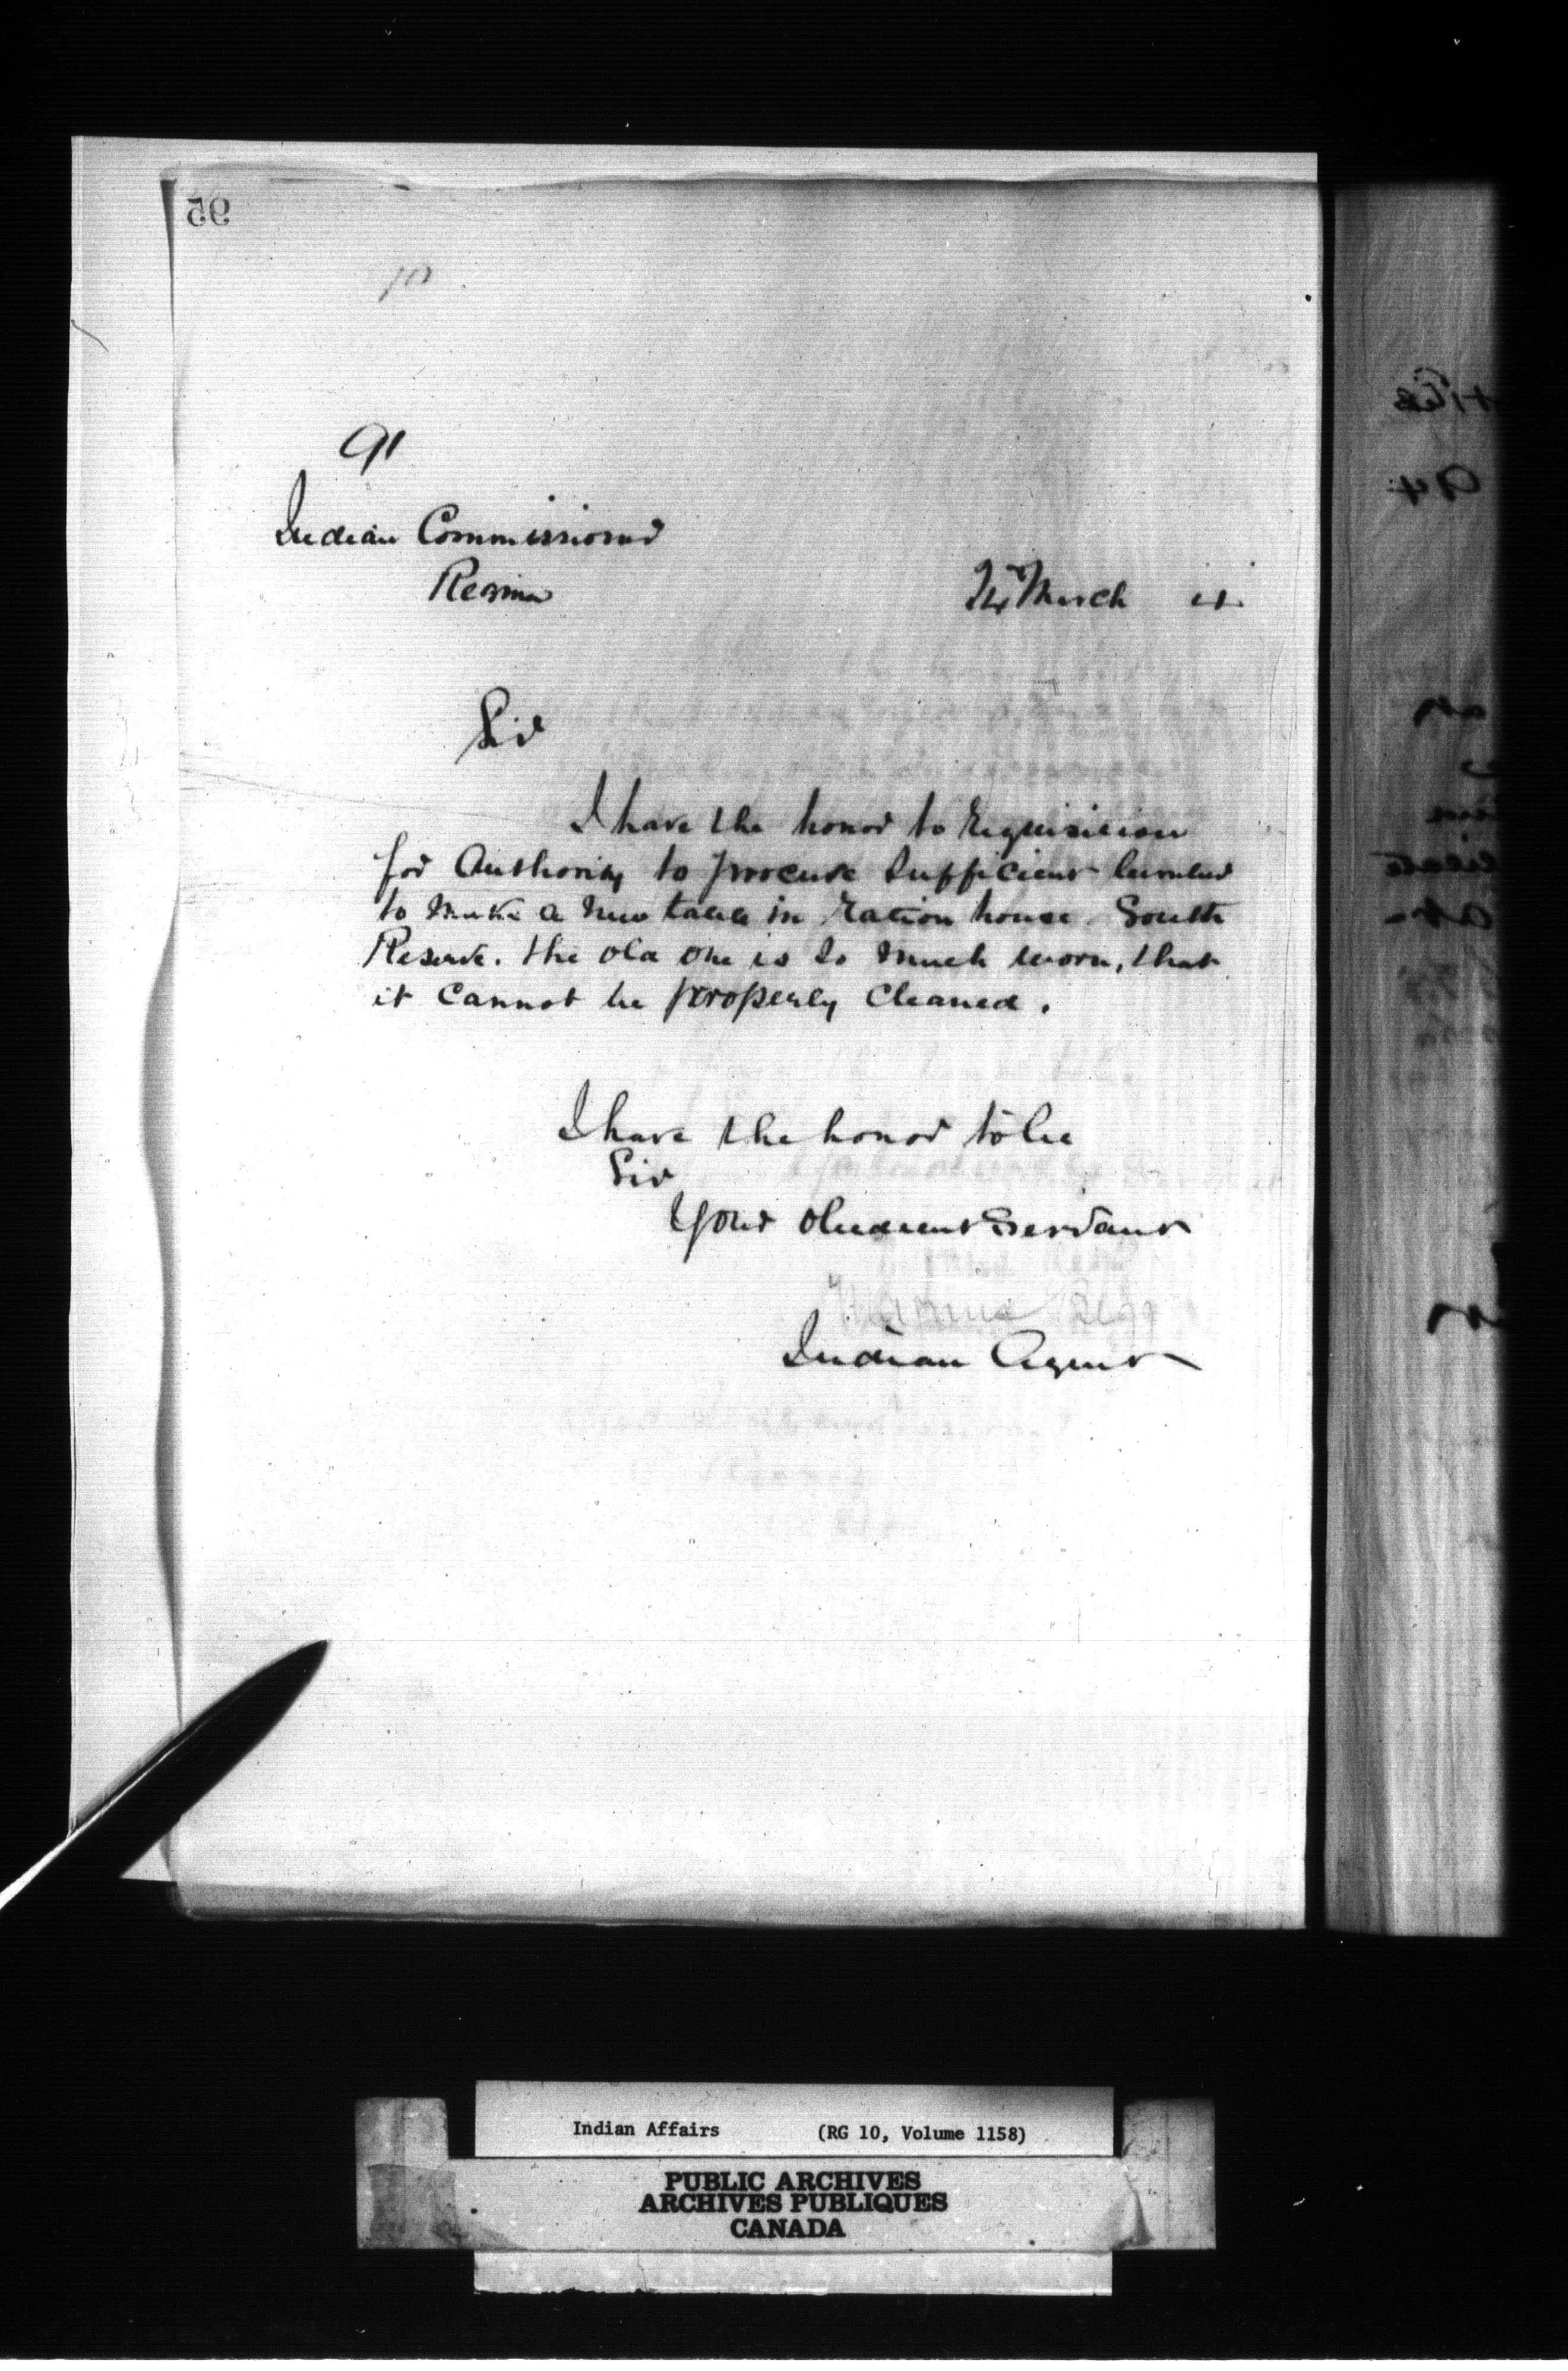 95
10
91
Indian Commissioner
Regina
14 March
Sir
I have the honor to requisition
for Authority to procure sufficient lumber
to make a new table in ration house South
Reserve. the old one is so much worn, that
it cannot be properly cleaned.
I have the honor to be
Sir
Your obedient Servant
Indian Agent
94
Indian Affairs (RG 10, Volume 1158)
PUBLIC ARCHIVES
ARCHIVES PUBLIQUES
CANADA